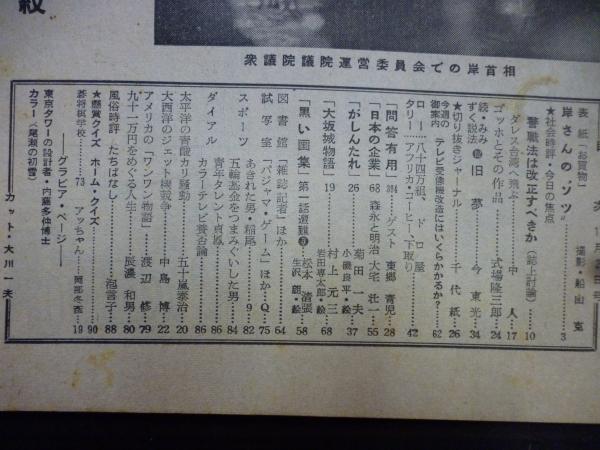 衆議院議院運営委員会での岸首相
表紙「お買物」
撮影・船山克
岸さんの“ゾツ”……3
★社会時評・今日の焦点
警職法は改正すべきか（誌上討論）……10
ダレス台湾へ飛ぶ……中 人…17
ゴッホとその作品……式場隆三郎…24
続・みみずく説法 旧夢……今東光…34
★切り抜きジャーナル……千代紙…26
今週の御案内 テレビ受像機改造にはいくらかかるか？……62
ロー……八十四万組、ドロ屋
タリー……アフリカ・コーヒー、下取り……42
「問答有用」ゲスト 東郷青児…28
「日本の企業」68 森永と明治 大宅壮一…55
「がしんたれ」26 菊田一夫 小磯良平・絵…37
「大坂城物語」19 村上元三 岩田専太郎・絵…68
「黒い画集」第一話遭難⑤ 松本清張 生沢朗・絵…58
図書館「雑誌記者」ほか……64
試写室「パジャマ・ゲーム」ほか…Q…75
スポーツ あきれた男・稲尾……9
五輪基金をつまみぐいした男…84
ダイアル 青年タレント貞鳳……86
カラーテレビ賛否論……86
太平洋の青酸カリ騒動……五十嵐泰治…20
大西洋のジェット機競争……中島博…22
アメリカの「ワンワン物語」…渡辺修…79
九十一万円をめぐる人生……辰濃和男…80
風俗時評・たちばなし……泡言子…88
★懸賞クイズ ホーム・クイズ……90
碁将棋学校……73 アッちゃん……岡部冬彦…19
グラビア・ページ
東京タワーの設計者・内藤多仲博士
カラー〈尾瀬の初雪〉
カット・大川一夫